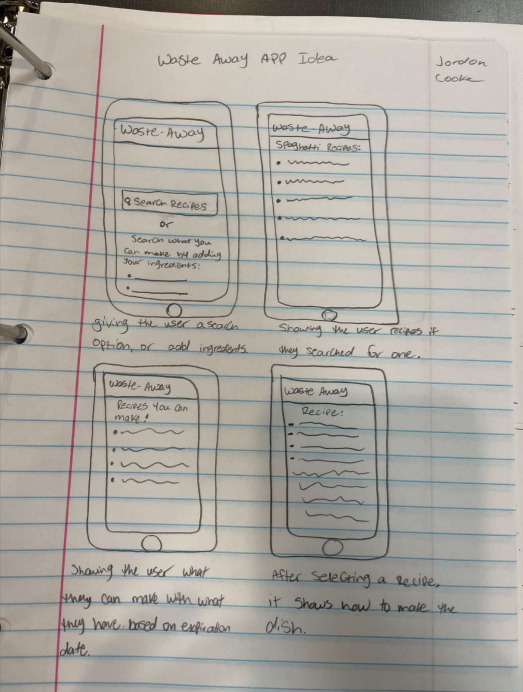 Waste Away APP Idea
Jordon
Cooke
Waste-Away
Search Recipes
or
Search what you
can make by adding
your ingredients:
giving the user a search
option, or add ingredients.
Waste-Away
Spaghetti Recipes:
Showing the user recipes if
they searched for one.
Waste-Away
Recipes you can
make:
Showing the user what
they can make with what
they have based on expiration
date.
Waste Away
Recipe:
After selecting a recipe,
it shows how to make the
dish.